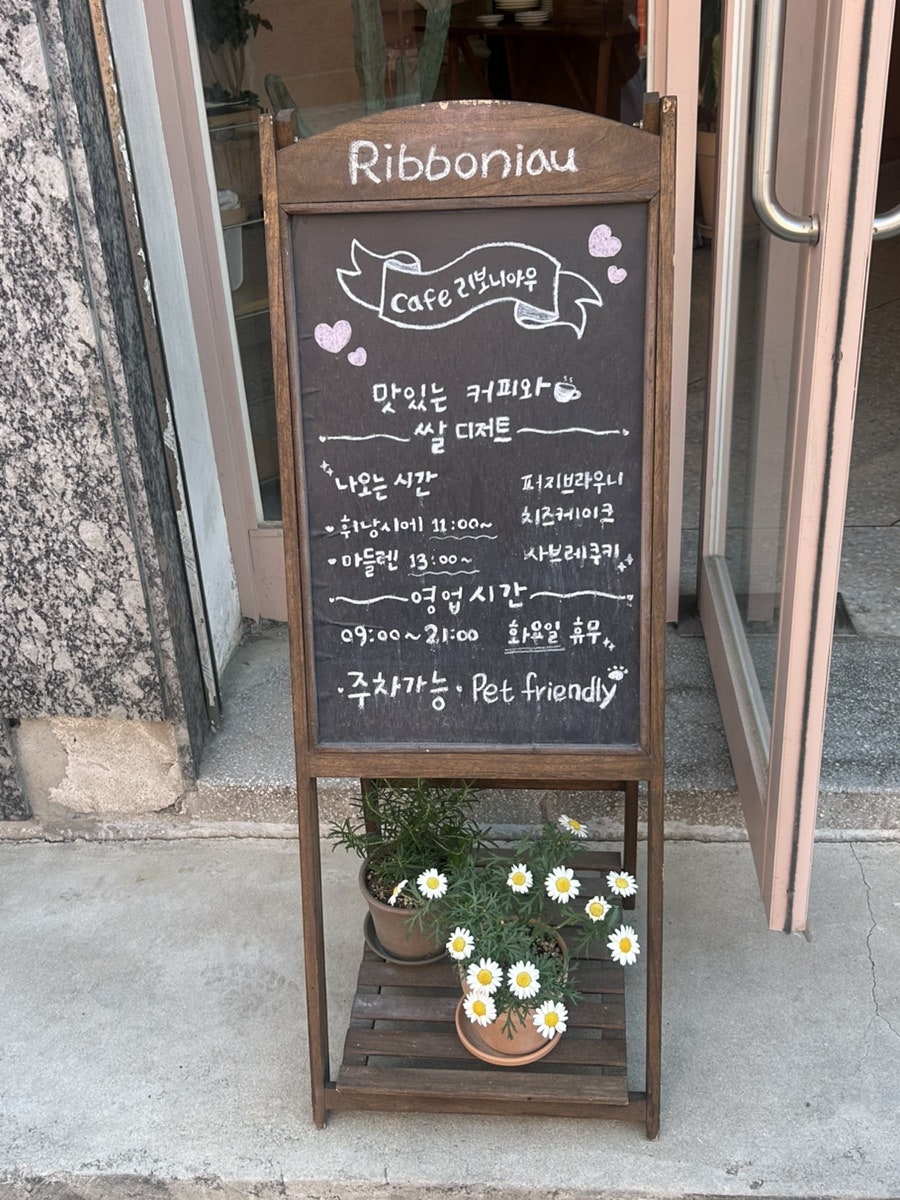 Ribboniau
Cafe 리보니아우
맛있는 커피와
쌀 디저트
나오는 시간
휘낭시에 11:00~
마들렌 13:00~
퍼지브라우니
치즈케이크
사브레쿠키
영업시간
09:00~21:00 화요일 휴무
·주차가능· Pet friendly